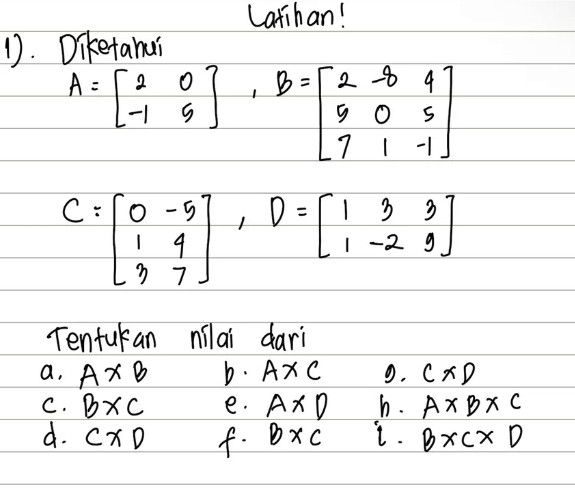 Latihan!
1). Diketahui
A = [2 0
-1 5] , B = [2 -8 4
5 0 5
7 1 -1]
C = [0 -5
1 4
3 7] , D = [1 3 3
1 -2 9]
Tentukan nilai dari
a. A x B b. A x C g. C x D
c. B x C e. A x D h. A x B x C
d. C x D f. B x C i. B x C x D